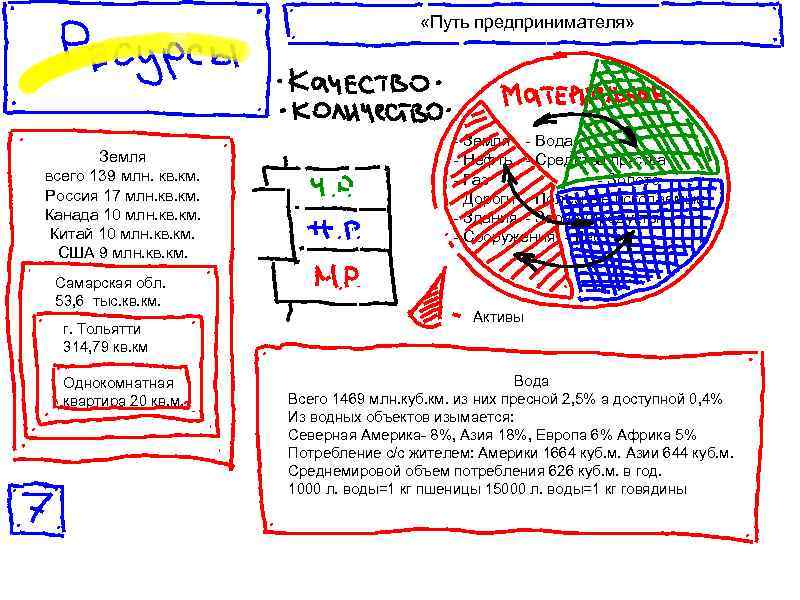 «Путь предпринимателя»
Ресурсы
· Качество ·
· Количество ·
Материальные
Земля
всего 139 млн. кв.км.
Россия 17 млн.кв.км.
Канада 10 млн.кв.км.
Китай 10 млн.кв.км.
США 9 млн.кв.км.
Самарская обл.
53,6 тыс.кв.км.
г. Тольятти
314,79 кв.км
Однокомнатная
квартира 20 кв.м.
Ч.Р.
Н.Р.
М.Р.
- Земля - Вода
- Нефть
- Газ
- Дороги
- Здания
- Сооружения
- Активы
Вода
Всего 1469 млн.куб.км. из них пресной 2,5% а доступной 0,4%
Из водных объектов изымается:
Северная Америка- 8%, Азия 18%, Европа 6% Африка 5%
Потребление с/с жителем: Америки 1664 куб.м. Азии 644 куб.м.
Среднемировой объем потребления 626 куб.м. в год.
1000 л. воды=1 кг пшеницы 15000 л. воды=1 кг говядины
7